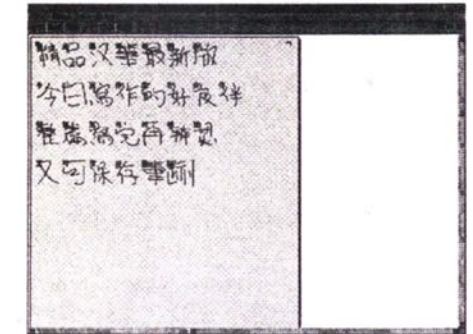 精品汉筆最新版
今日寫作的好良伴
整篇寫完再辨認
又可保存筆跡